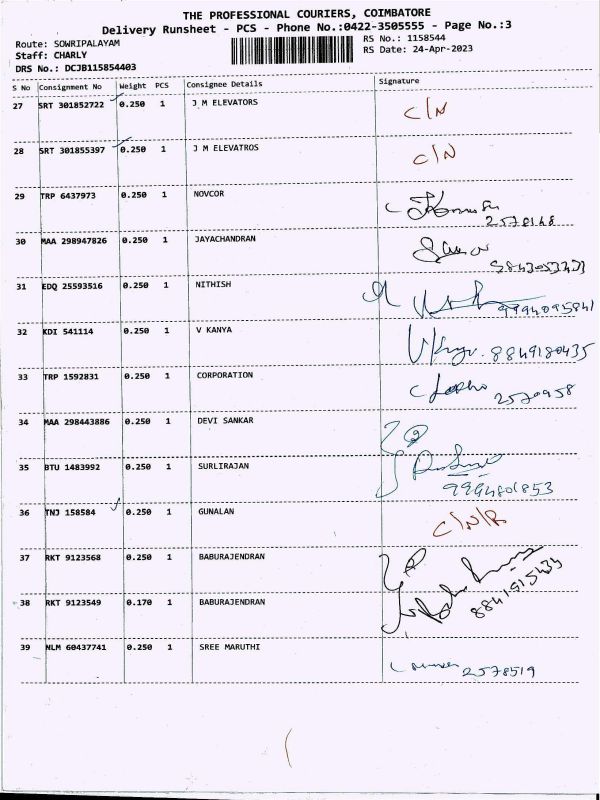 THE PROFESSIONAL COURIERS, COIMBATORE
Delivery Runsheet - PCS - Phone No.:0422-3505555 - Page No.:3
Route: SOWRIPALAYAM RS No.: 1158544
Staff: CHARLY RS Date: 24-Apr-2023
DRS No.: DCJB115854403
S No Consignment No Weight PCS Consignee Details Signature
27 SRT 301852722 0.250 1 J M ELEVATORS C/N
28 SRT 301855397 0.250 1 J M ELEVATROS C/N
29 TRP 6437973 0.250 1 NOVCOR
2570148
30 MAA 298947826 0.250 1 JAYACHANDRAN
31 EDQ 25593516 0.250 1 NITHISH
9994095841
32 KDI 541114 0.250 1 V KANYA
8849180435
33 TRP 1592831 0.250 1 CORPORATION
2570958
34 MAA 298443886 0.250 1 DEVI SANKAR
35 BTU 1483992 0.250 1 SURLIRAJAN
9994801853
36 TNJ 158584 0.250 1 GUNALAN C/N/R
37 RKT 9123568 0.250 1 BABURAJENDRAN
38 RKT 9123549 0.170 1 BABURAJENDRAN
8841515434
39 NLM 60437741 0.250 1 SREE MARUTHI
2578519